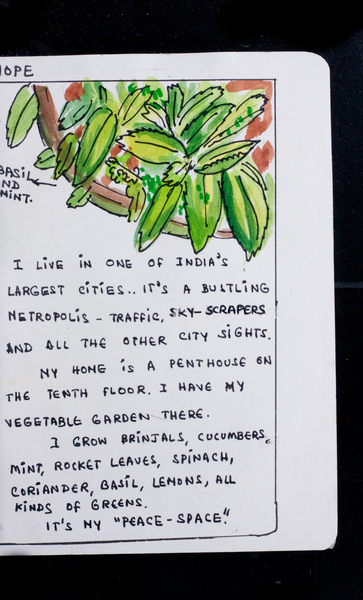 HOPE
BASIL
AND
MINT.
I LIVE IN ONE OF INDIA'S
LARGEST CITIES.. IT'S A BUSTLING
METROPOLIS - TRAFFIC, SKY-SCRAPERS
AND ALL THE OTHER CITY SIGHTS.
MY HOME IS A PENTHOUSE ON
THE TENTH FLOOR. I HAVE MY
VEGETABLE GARDEN THERE.
I GROW BRINJALS, CUCUMBERS,
MINT, ROCKET LEAVES, SPINACH,
CORIANDER, BASIL, LEMONS, ALL
KINDS OF GREENS.
IT'S MY "PEACE-SPACE".